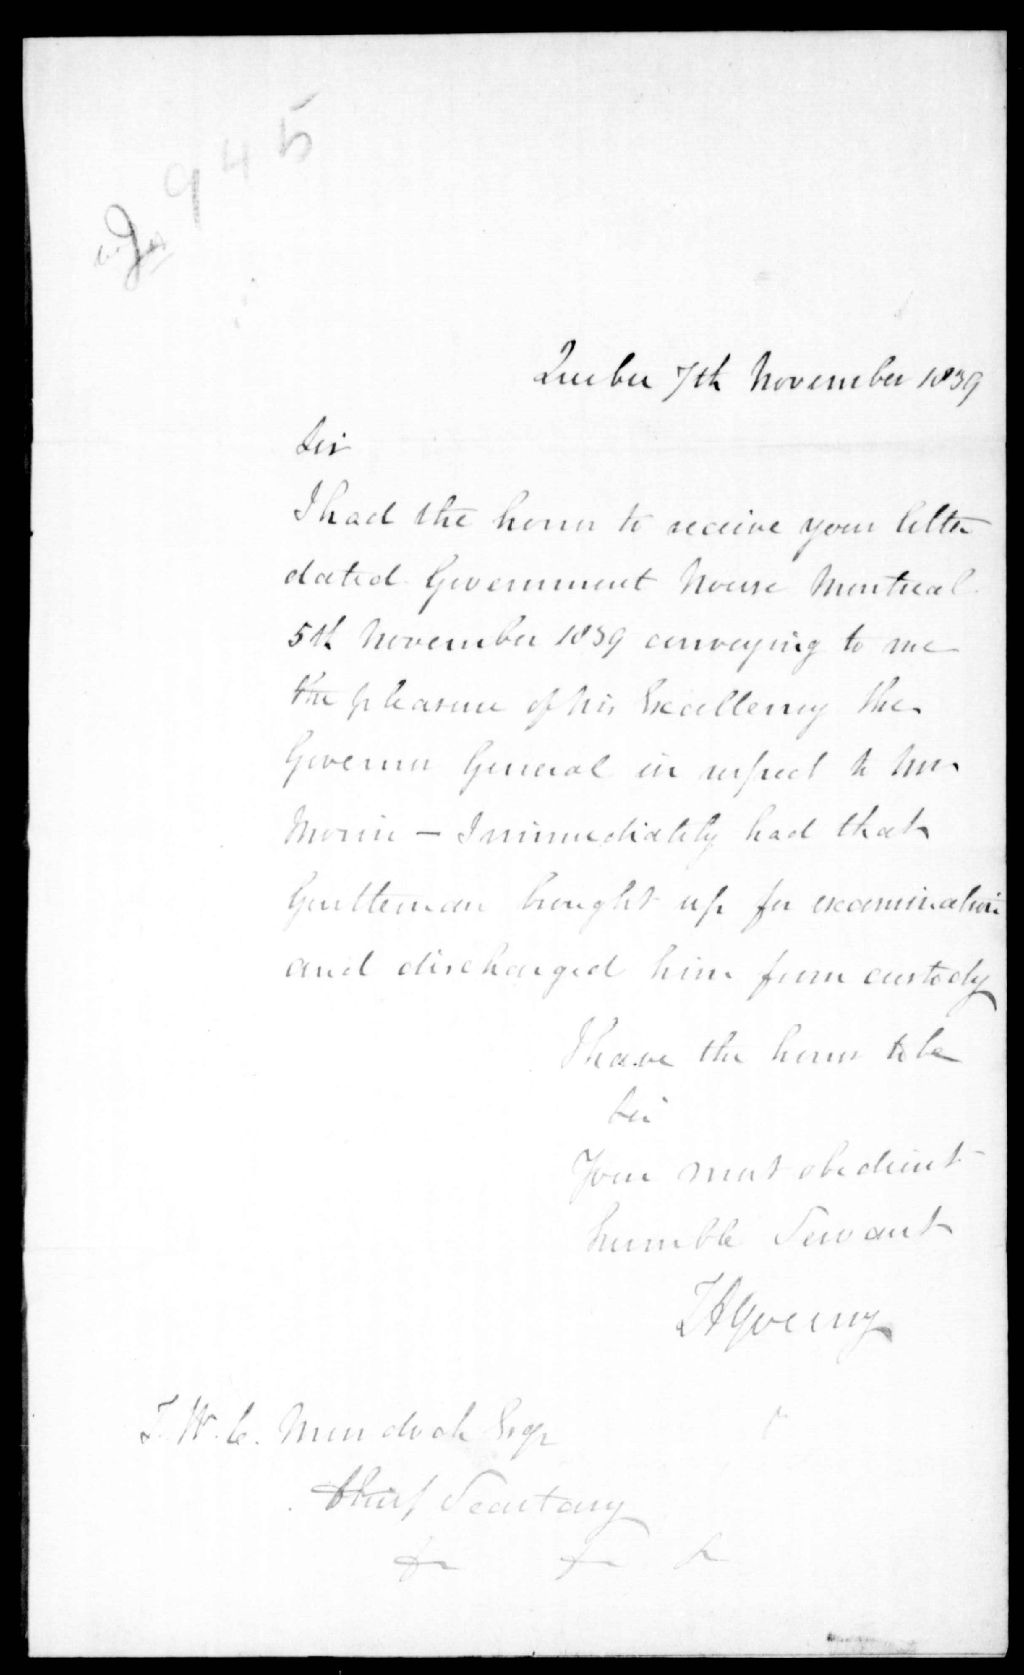 945
Quebec 7th November 1839
Sir
I had the honor to receive your letter
dated Government House Montreal
5th November 1839 conveying to me
the pleasure of his Excellency the
Governor General in respect to Mr
Morin — I immediately had that
Gentleman brought up for examination
and discharged him from custody
I have the honor to be
Sir
Your most obedient
humble Servant
T A Young
T. W. C. Murdoch Esqr
Chief Secretary
&c &c &c